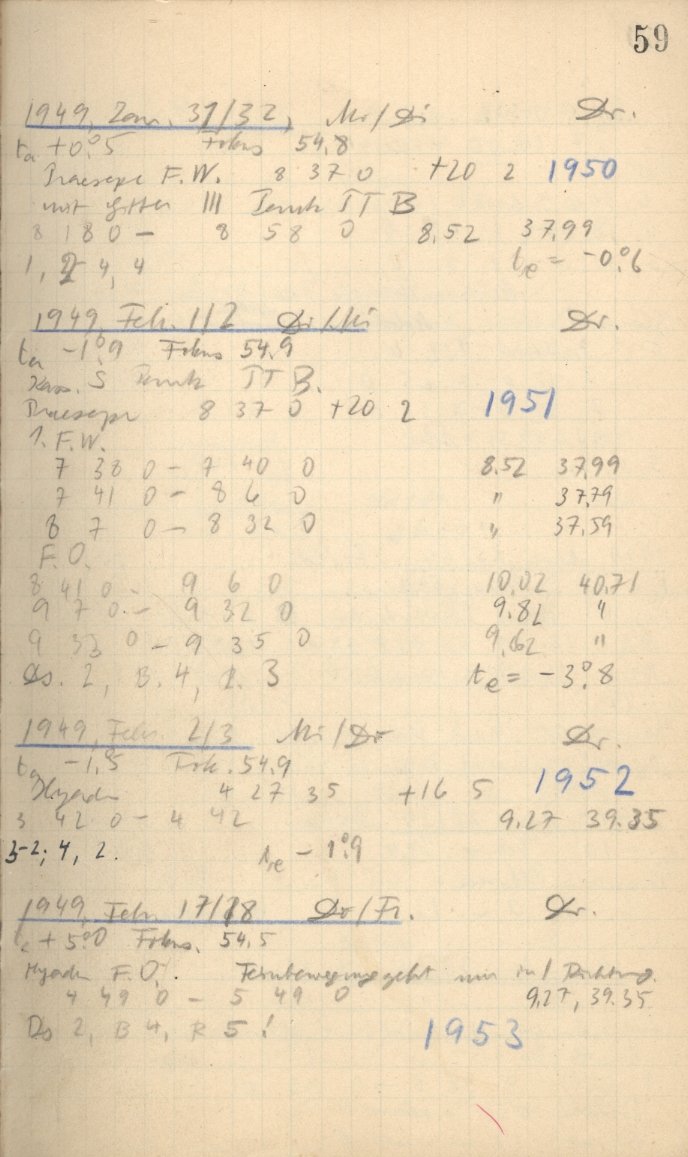 59
1949, Jan. 31/32, Mo/Di Dr.
ta +0°.5 Fokus 54,8
Praesepe F.W. 8 37 0 +20 2 1950
mit Gitter III TT B
8 18 0 - 8 58 0 8.52 37.99
1, 2 4, 4 te = -0°.6
1949, Feb. 1/2 Di/Mi Dr.
ta -1°.9 Fokus 54.9
Kass. S TT B.
Praesepe 8 37 0 +20 2 1951
1. F.W.
7 38 0 - 7 40 0 8.52 37.99
7 41 0 - 8 6 0 " 37.79
8 7 0 - 8 32 0 " 37.59
F.O.
8 41 0 - 9 6 0 10.02 40.71
9 7 0 - 9 32 0 9.82 "
9 33 0 - 9 35 0 9.62 "
Ds. 2, B. 4, R. 3 te = -3°.8
1949, Feb. 2/3 Mi/Do Dr.
ta -1.5 Fok. 54.9
Hyaden 4 27 35 +16 5 1952
3 42 0 - 4 42 9.27 39.35
3-2; 4, 2. te - 1°.9
1949, Feb. 17/18 Do/Fr. Dr.
+5°.0 Fokus. 54.5
Hyaden F.O. Feinbewegung geht nur in 1 Richtung.
4 49 0 - 5 49 0 9.27, 39.35
Ds 2, B 4, R 5!
1953